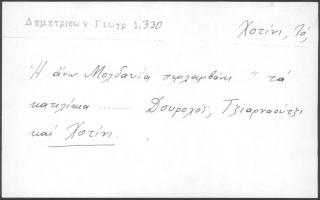 Δημητριεων Γεωγρ 1.330
Χοτίνι, Τό,
Η άνω Μολδαυία περιλαμβάνει " τά
κατιλίκια ......... Δουρολόϊ, Τζιαρναούτζι
καί Χοτίνι.